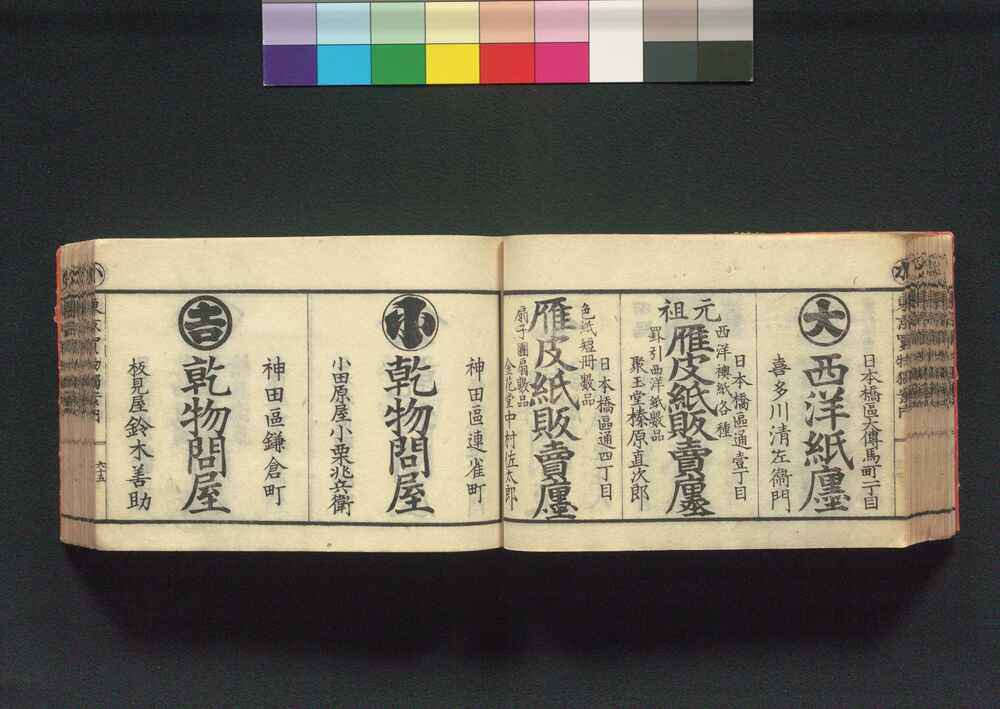 日本橋區大傳馬町二丁目
大
西洋紙廛
喜多川清左衞門
日本橋區通壹丁目
西洋襖紙各種
元祖
雁皮紙販賣廛
罫引西洋紙數品
聚玉堂榛原直次郎
日本橋區通四丁目
色紙短冊數品
雁皮紙販賣廛
扇子團扇數品
金花堂中村佐太郎
神田區連雀町
小
乾物問屋
小田原屋小栗兆兵衞
神田區鎌倉町
吉
乾物問屋
板見屋鈴木善助
六十五